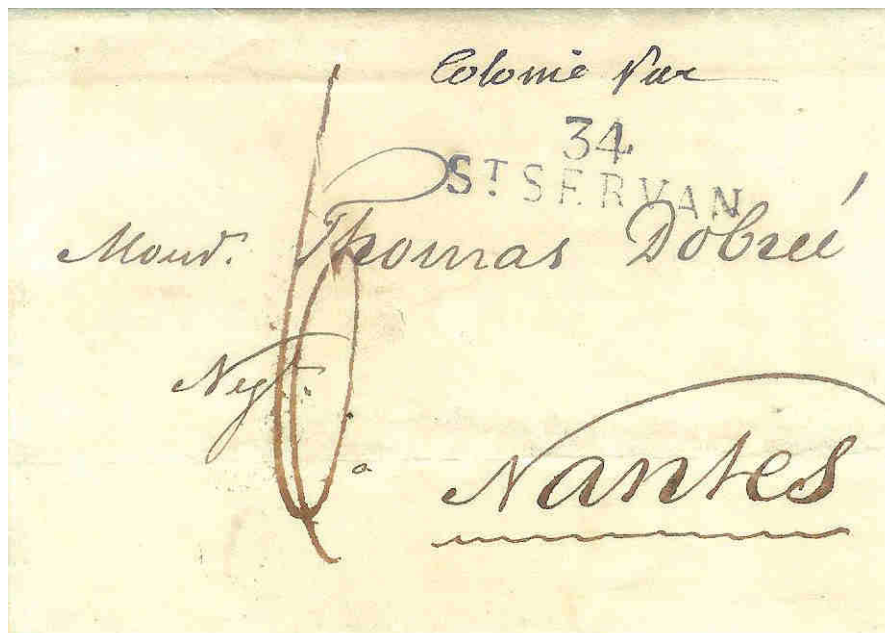 Colonie Par
34
ST SERVAN
Monsr. Thomas Dobreé
Negt.
Nantes